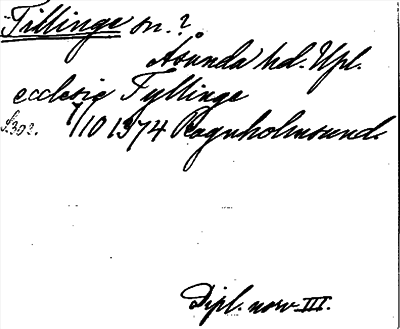 Tillinge sn.?
Åsunda hd. Upl.
ecclesie Tyllinge
s. 302. 7/10 1374 Ragnholmsund.
Dipl. nov. III.